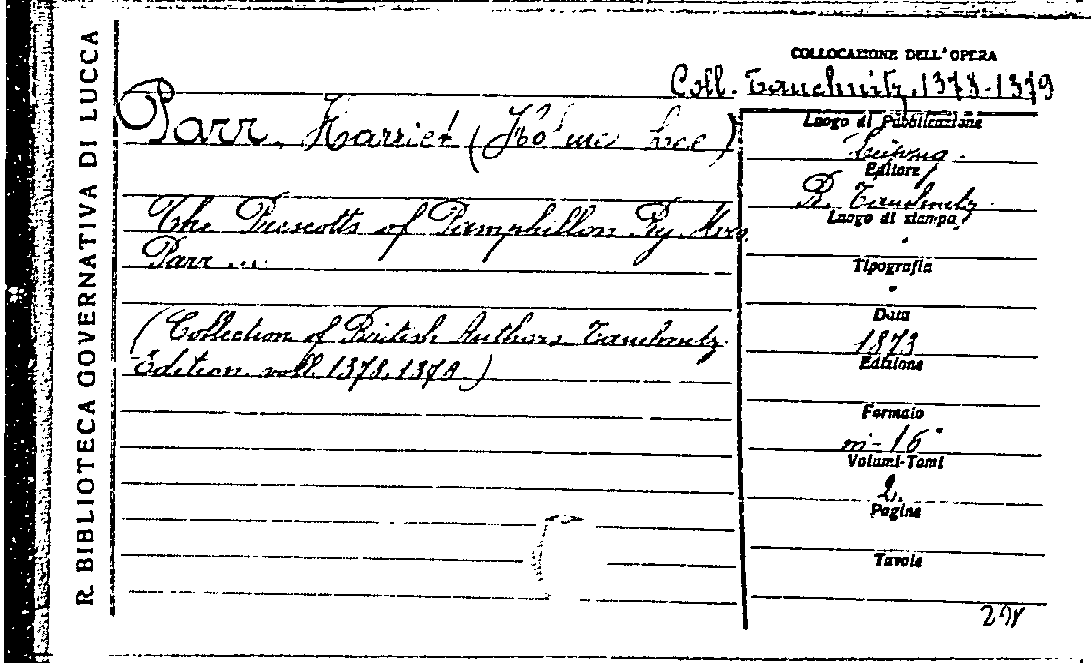 R. BIBLIOTECA GOVERNATIVA DI LUCCA
COLLOCAZIONE DELL'OPERA
Coll. Tauchnitz, 1378-1379
Parr, Harriet (Holme Lee)
The Prescotts of Pamphillon By Mrs.
Parr ...
(Collection of British Authors Tauchnitz
Edition voll. 1378, 1379.)
Luogo di Pubblicazione
Leipzig.
Editore
B. Tauchnitz
Luogo di stampa
Tipografia
Data
1873
Edizione
Formato
in-16°
Volumi-Tomi
2.
Pagine
Tavole